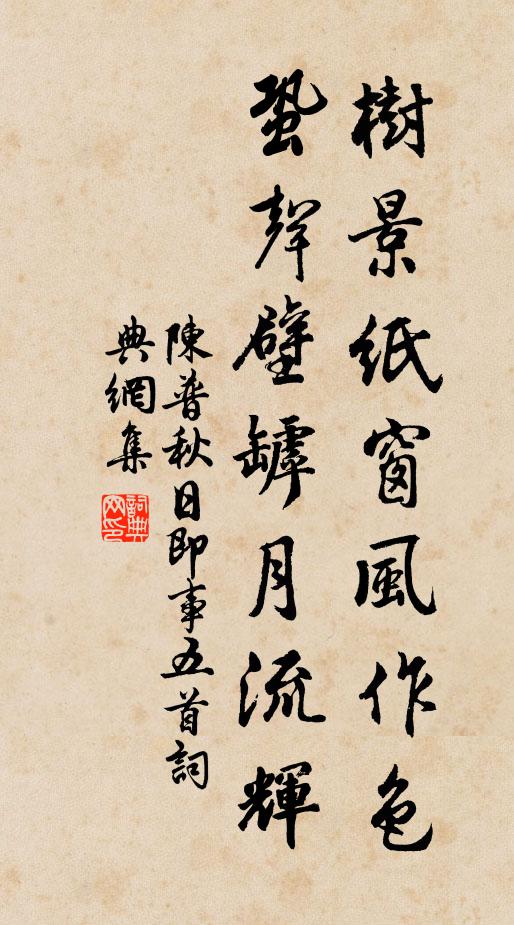 樹景紙窗風作色
蛩聲壁罅月流輝
陳普秋日即事五首詞
典網集
詞典
网印